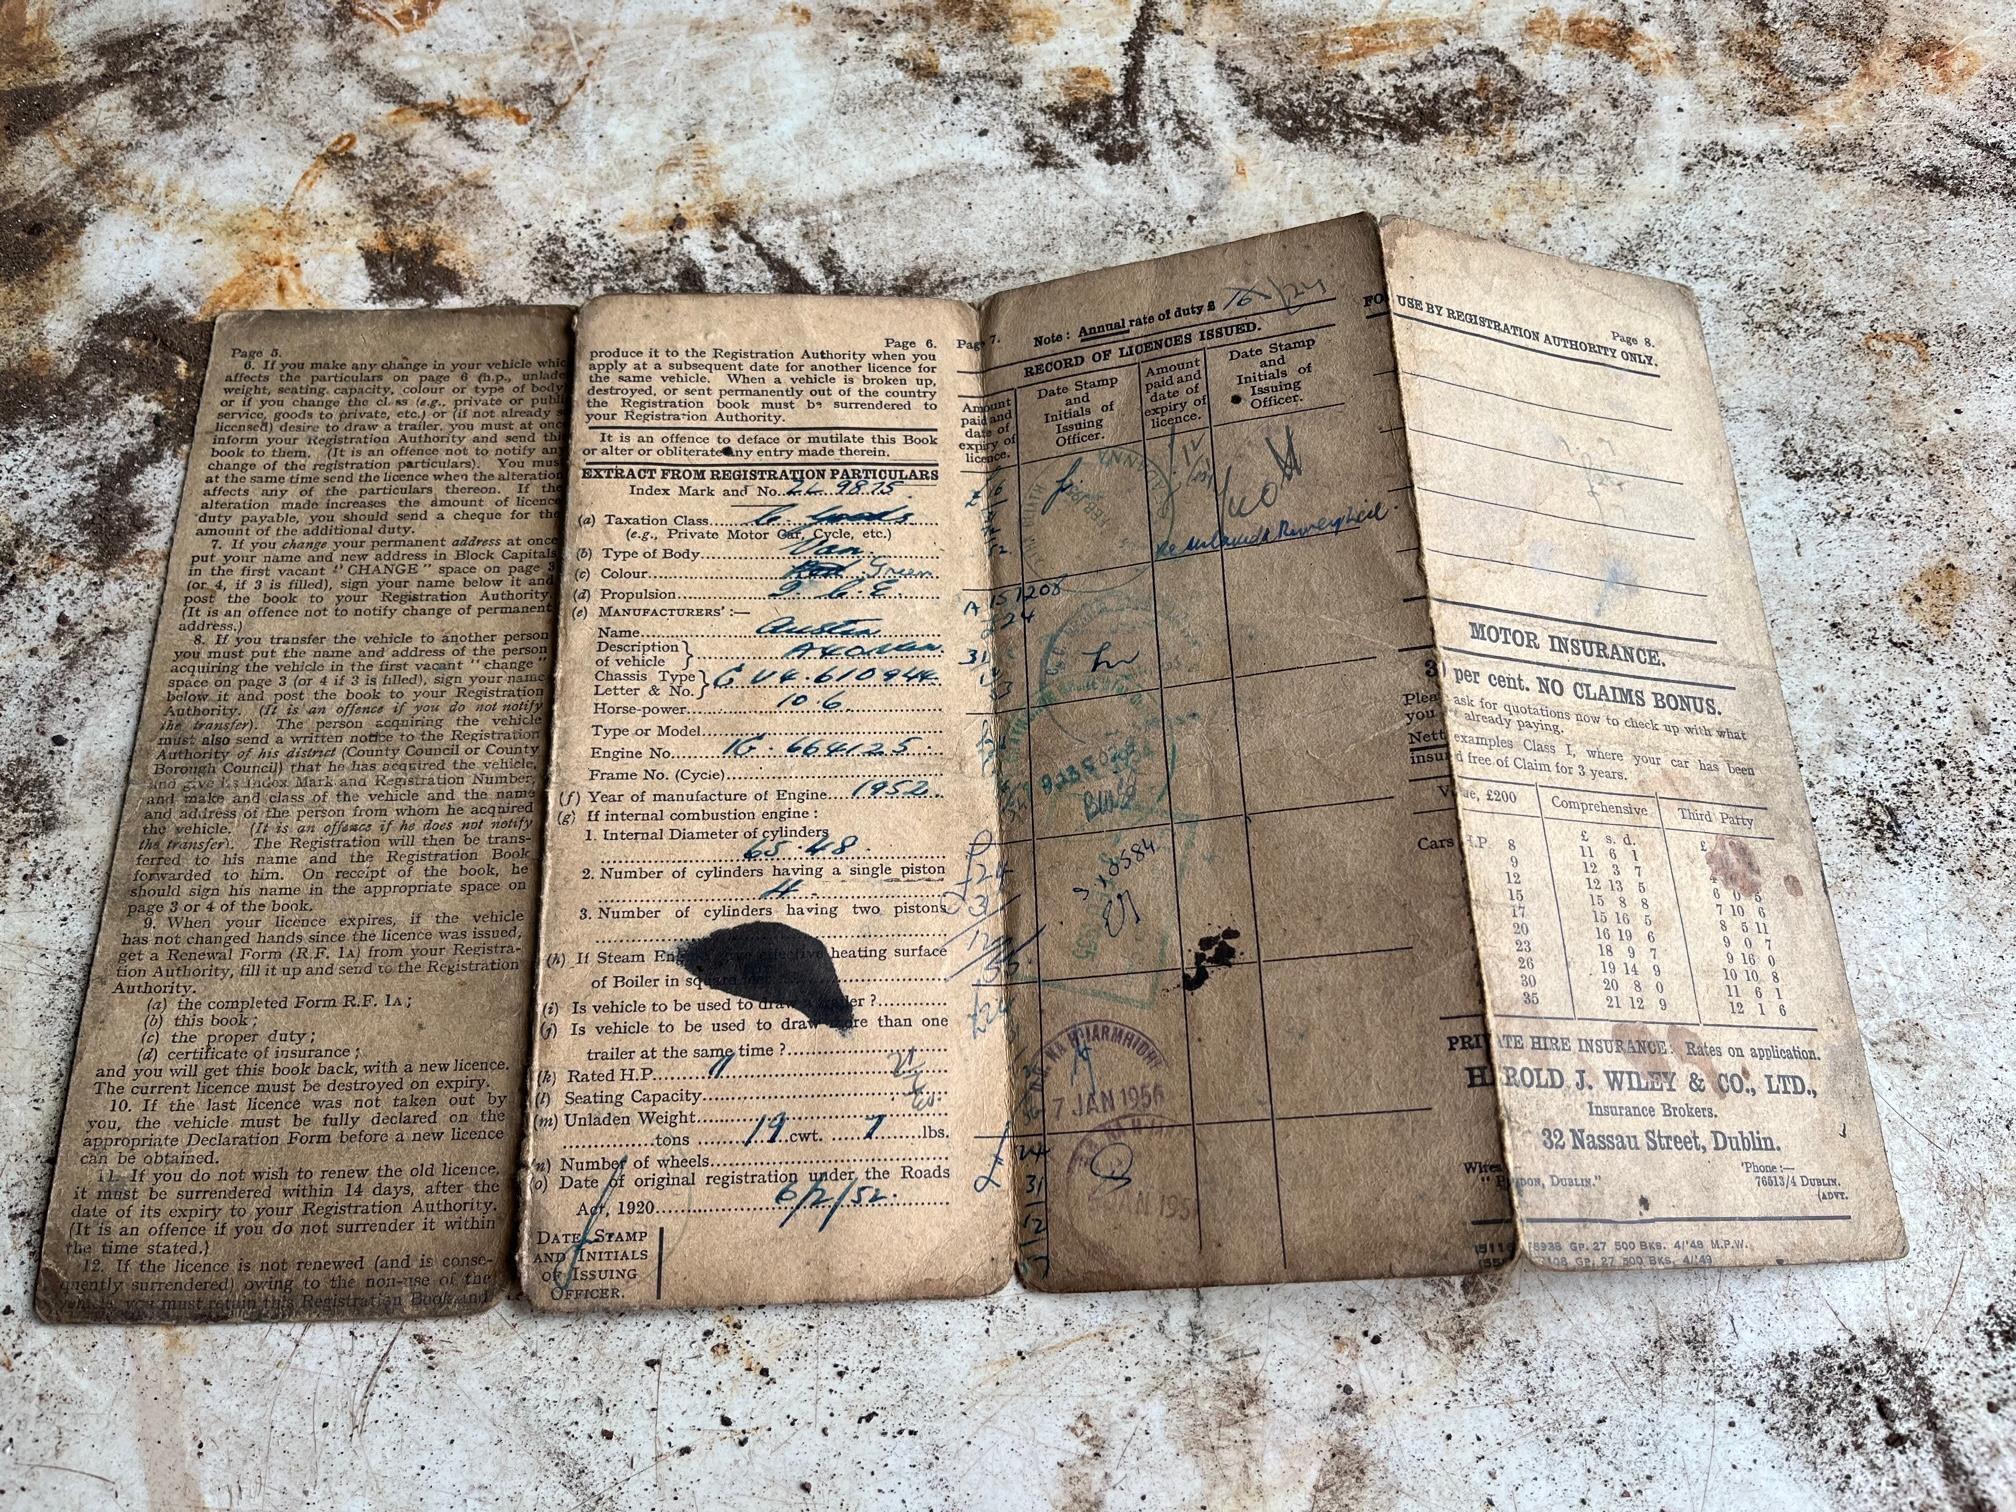 Page 5.
6. If you make any change in your vehicle whic
affects the particulars on page 6 (h.p., unlade
weight, seating, capacity, colour or type of body
or if you change the class (e.g., private or publi
service, goods to private, etc.) or (if not already s
licensed) desire to draw a trailer, you must at onc
inform your Registration Authority and send thi
book to them. (It is an offence not to notify any
change of the registration particulars). You must
at the same time send the licence when the alteration
affects any of the particulars thereon. If the
alteration made increases the amount of licence
duty payable, you should send a cheque for the
amount of the additional duty.
7. If you change your permanent address at once
put your name and new address in Block Capitals
in the first vacant "CHANGE" space on page 3
(or 4, if 3 is filled), sign your name below it and
post the book to your Registration Authority.
(It is an offence not to notify change of permanent
address.)
8. If you transfer the vehicle to another person
you must put the name and address of the person
acquiring the vehicle in the first vacant "change"
space on page 3 (or 4 if 3 is filled), sign your name
below it and post the book to your Registration
Authority. (It is an offence if you do not notify
the transfer). The person acquiring the vehicle
must also send a written notice to the Registration
Authority of his district (County Council or County
Borough Council) that he has acquired the vehicle,
and give its Index Mark and Registration Number,
and make and class of the vehicle and the name
and address of the person from whom he acquired
the vehicle. (It is an offence if he does not notify
the transfer). The Registration will then be trans-
ferred to his name and the Registration Book
forwarded to him. On receipt of the book, he
should sign his name in the appropriate space on
page 3 or 4 of the book.
9. When your licence expires, if the vehicle
has not changed hands since the licence was issued,
get a Renewal Form (R.F. 1A) from your Registra-
tion Authority, fill it up and send to the Registration
Authority.
(a) the completed Form R.F. 1A;
(b) this book;
(c) the proper duty;
(d) certificate of insurance;
and you will get this book back, with a new licence.
The current licence must be destroyed on expiry.
10. If the last licence was not taken out by
you, the vehicle must be fully declared on the
appropriate Declaration Form before a new licence
can be obtained.
11. If you do not wish to renew the old licence,
it must be surrendered within 14 days, after the
date of its expiry to your Registration Authority.
(It is an offence if you do not surrender it within
the time stated.)
12. If the licence is not renewed (and is conse-
quently surrendered) owing to the non-use of the
vehicle, you must retain this Registration Book and
Page 6.
produce it to the Registration Authority when you
apply at a subsequent date for another licence for
the same vehicle. When a vehicle is broken up,
destroyed, or sent permanently out of the country
the Registration book must be surrendered to
your Registration Authority.
It is an offence to deface or mutilate this Book
or alter or obliterate any entry made therein.
EXTRACT FROM REGISTRATION PARTICULARS
Index Mark and No. ZL 9875
(a) Taxation Class C. Goods
(e.g., Private Motor Car, Cycle, etc.)
(b) Type of Body Van
(c) Colour Red Green
(d) Propulsion I.C.E.
(e) MANUFACTURERS':—
Name Austin
Description of vehicle A40 Van
Chassis Type Letter & No. G V4. 610944
Horse-power 10.6
Type or Model
Engine No. 1G. 664125.
Frame No. (Cycle)
(f) Year of manufacture of Engine 1952
(g) If internal combustion engine:
1. Internal Diameter of cylinders
65.48
2. Number of cylinders having a single piston
4
3. Number of cylinders having two pistons
(h) If Steam heating surface
of Boiler in
(i) Is vehicle to be used to draw a trailer?
(j) Is vehicle to be used to draw more than one
trailer at the same time?
(k) Rated H.P. 11
(l) Seating Capacity
(m) Unladen Weight
tons 19 cwt. 7 lbs.
(n) Number of wheels
(o) Date of original registration under the Roads
Act, 1920 6/2/52.
DATE STAMP
AND INITIALS
OF ISSUING
OFFICER.
Page 7.
Note: Annual rate of duty £ 16/24
RECORD OF LICENCES ISSUED.
Amount paid and date of expiry of licence.
Date Stamp and Initials of Issuing Officer.
Amount paid and date of expiry of licence.
Date Stamp and Initials of Issuing Officer.
A 151208
£24
31
£24
31
£24
7 JAN 1956
£24
31
12
FO USE BY REGISTRATION AUTHORITY ONLY.
Page 8.
MOTOR INSURANCE.
3 per cent. NO CLAIMS BONUS.
Plea ask for quotations now to check up with what
you already paying.
Nett examples Class I, where your car has been
insu d free of Claim for 3 years.
V ue, £200 Comprehensive Third Party
£ s. d. £
Cars H.P. 8 11 6 1
9 12 3 7
12 12 13 5 6 0 5
15 15 8 8 7 10 6
17 15 16 5 8 5 11
20 16 19 6 9 0 7
23 18 9 7 9 16 0
26 19 14 9 10 10 8
30 20 8 0 11 6 1
35 21 12 9 12 1 6
PRIVATE HIRE INSURANCE: Rates on application.
HAROLD J. WILEY & CO., LTD.,
Insurance Brokers.
32 Nassau Street, Dublin.
Wires
DON, DUBLIN."
'Phone:—
76513/4 DUBLIN.
(ADVT.
6938 GP. 27 500 BKS. 4/'48 M.P.W.
108 GP. 27 500 BKS. 4/'49